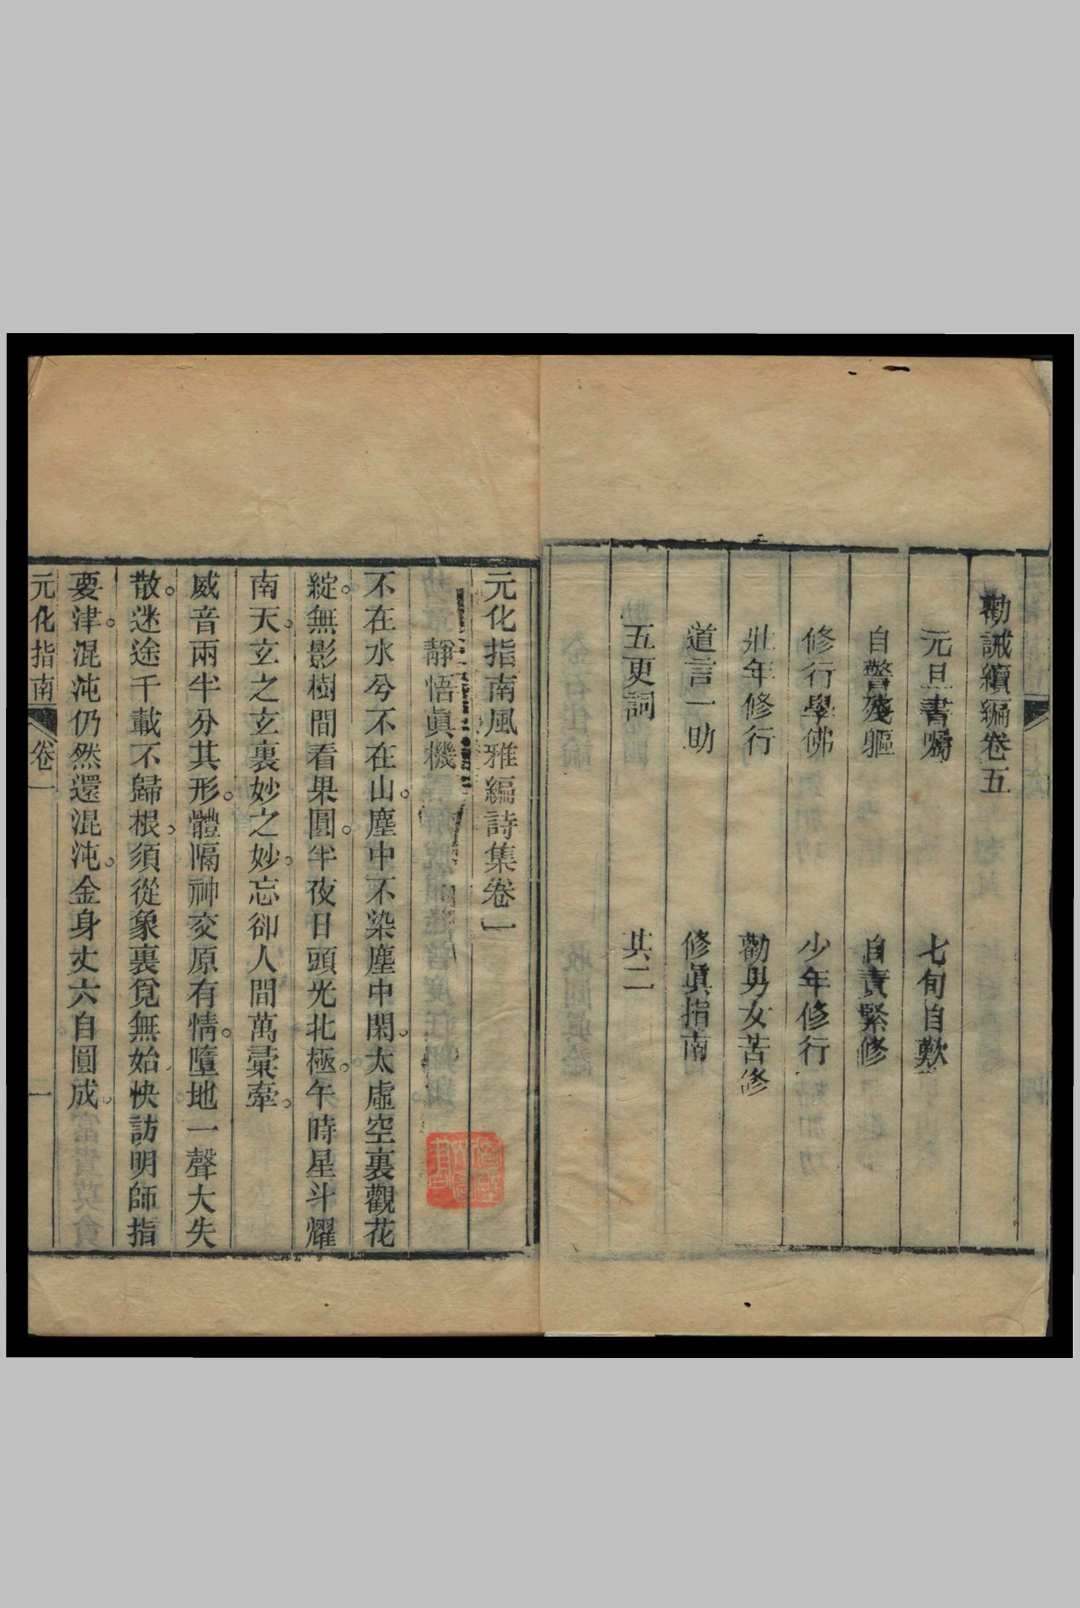 勸誡續編卷五
元旦書燭　七旬自歎
自警殘軀　自責緊修
修行學佛　少年修行
壯年修行　勸男女苦修
道言一助　修眞指南
五更詞　其二
元化指南風雅編詩集卷一
靜悟眞機
不在水兮不在山。塵中不染塵中閑。太虛空裏觀花
綻。無影樹間看果圓。半夜日頭光北極。午時星斗耀
南天。玄之玄裏妙之妙。忘卻人間萬彙牽。
威音兩半分其形。體隔神交原有情。墮地一聲大失
散。迷途千載不歸根。須從象裏覓無始。快訪明師指
要津。混沌仍然還混沌。金身丈六自圓成。
元化指南　卷一　一